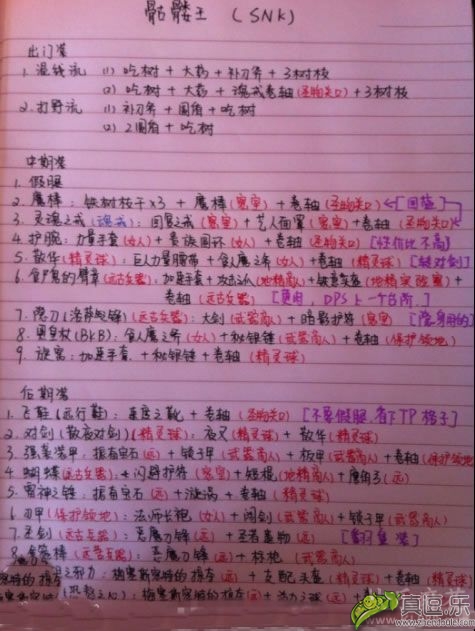 骷髅王 (SNK)
出门装
1. 混钱流 (1) 吃树 + 大药 + 补刀斧 + 3树枝
(2) 吃树 + 大药 + 魂戒卷轴 (圣物关口) + 3树枝
2. 打野流 (1) 补刀斧 + 圆盾 + 吃树
(2) 2圆盾 + 吃树
中期装
1. 假腿
2. 魔棒: 铁树枝干×3 + 魔棒 (密室) + 卷轴 (圣物关口) [回蓝]
3. 灵魂之戒 (魂戒): 回复之戒 (密室) + 艺人面罩 (密室) + 卷轴 (圣物关口)
4. 护腕: 力量手套 (女人) + 贵族圆环 (女人) + 卷轴 (圣物关口) [性价比不高]
5. 散华 (精灵球): 巨人力量腰带 + 食人魔之斧 (女人) + 卷轴 (精灵球) [转对剑]
6. 食尸鬼的臂章 (远古兵器): 加速手套 + 攻击之爪 (地精商人) + 铁意头盔 (地精实验室) +
卷轴 (远古兵器) DPS上一个台阶]
7. 隐刀 (洛萨之锋): 大剑 (武器商人) + 暗影护符 (密室) [隐身用的]
8. 黑皇杖 (BKB): 食人魔之斧 (女人) + 秘银锤 (武器商人) + 卷轴 (保护领地)
9. 漩涡: 加速手套 + 秘银锤 + 卷轴 (精灵球)
后期装
1. 飞鞋 (远行鞋): 速度之靴 + 卷轴 (圣物关口) [不要假腿, 省下TP格子]
2. 对剑 (散夜对剑) (精灵球): 夜叉 (精灵球) + 散华 (精灵球)
3. 强袭装甲: 振奋宝石 (远) + 锁子甲 (武器商人) + 板甲 (武器商人) + 卷轴 (保护领地)
4. 蝴蝶 (远古兵器): 闪避护符 (密室) + 短棍 (地精商人) + 鹰角弓 (远)
5. 雷神之锤: 振奋宝石 (远) + 漩涡 + 卷轴 (精灵球)
6. 刃甲 (保护领地): 法师长袍 (女人) + 阔剑 (武器商人) + 锁子甲 (武器商人)
7. 圣剑 (远古兵器): 恶魔刀锋 (远) + 圣者遗物 (远)
8. 金箍棒 (远古兵器): 恶魔刀锋 (远) + 标枪 (武器商人)
邪力: 梅塞斯密特的掠夺 (远) + 支配头盔 (精灵球) + 卷轴 (精灵球)
梅塞斯密特的掠夺 (远) + 活力之球 (远)
真逗.乐
www.zhendoule.com